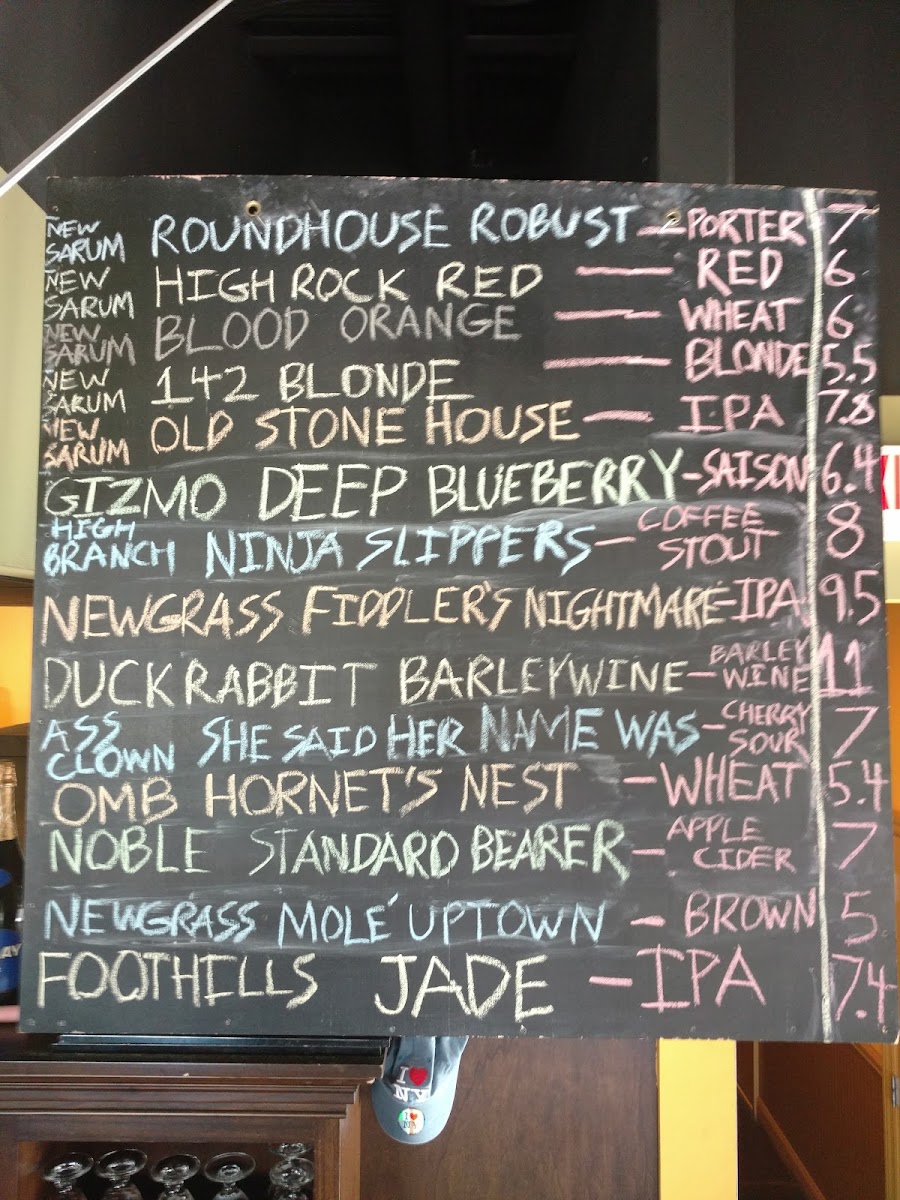 NEW SARUM ROUNDHOUSE ROBUST - PORTER 7
NEW SARUM HIGH ROCK RED - RED 6
NEW SARUM BLOOD ORANGE - WHEAT 6
NEW SARUM 142 BLONDE - BLONDE 5.5
NEW SARUM OLD STONE HOUSE - IPA 7.8
GIZMO DEEP BLUEBERRY - SAISON 6.4
HIGH BRANCH NINJA SLIPPERS - COFFEE STOUT 8
NEWGRASS FIDDLER'S NIGHTMARE - IPA 9.5
DUCKRABBIT BARLEYWINE - BARLEY WINE 11
ASS CLOWN SHE SAID HER NAME WAS - CHERRY SOUR 7
OMB HORNET'S NEST - WHEAT 5.4
NOBLE STANDARD BEARER - APPLE CIDER 7
NEWGRASS MOLÉ UPTOWN - BROWN 5
FOOTHILLS JADE - IPA 7.4
I ♥ NY